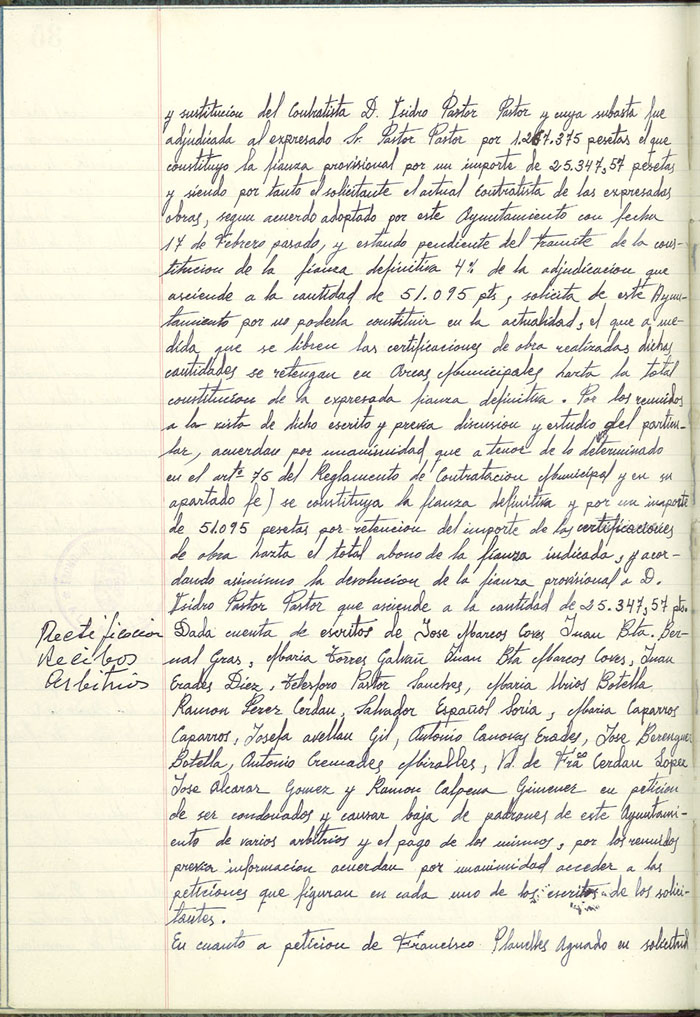 y sustitucion del Contratista D. Isidro Pastor Pastor y cuya subasta fue
adjudicada al expresado Sr. Pastor Pastor por 1.267.375 pesetas el que
constituyo la fianza provisional por un importe de 25.347,57 pesetas
y siendo por tanto el solicitante el actual contratista de las expresadas
obras, segun acuerdo adoptado por este Ayuntamiento con fecha
17 de Febrero pasado, y estando pendiente del tramite de la cons-
titucion de la fianza definitiva 4% de la adjudicacion que
asciende a la cantidad de 51.095 pts, solicita de este Ayun-
tamiento por no poderla constituir en la actualidad, el que a me-
dida que se libren las certificaciones de obra realizadas dichas
cantidades se retengan en Arcas Municipales hazta la total
constitucion de la expresada fianza definitiva. Por los reunidos
a la vista de dicho escrito y previa discusion y estudio del particu-
lar, acuerdan por unanimidad que a tenor de lo determinado
en el artº 75 del Reglamento de Contratacion Municipal y en su
apartado fe) se constituya la fianza definitiva y por un importe
de 51.095 pesetas por retencion del importe de las certificaciones
de obra hazta el total abono de la fianza indicada, y acor-
dando asimismo la devolucion de la fianza provisional a D.
Isidro Pastor Pastor que asciende a la cantidad de 25.347,57 pts.
Rectificacion
Recibos
Arbitrios
Dada cuenta de escritos de Jose Marcos Coves Juan Bta. Ber-
nal Gras, Maria Torres Galvañ Juan Bta Marcos Coves, Juan
Erades Diez, Telesforo Pastor Sanchez, Maria Urios Botella
Ramon Perez Cerdan, Salvador Español Soria, Maria Caparros
Caparros, Josefa avellan Gil, Antonio Canovas Erades, Jose Berenguer
Botella, Antonio Cremades Miralles, Vd. de Frãco Cerdan Lopez
Jose Alcaraz Gomez y Ramon Calpena Gimenez en peticion
de ser condonados y causar baja de padrones de este Ayuntami-
ento de varios arbitrios y el pago de los mismos, por los reunidos
previa informacion acuerdan por unanimidad acceder a las
peticiones que figuran en cada uno de los escritos de los solici-
tantes.
En cuanto a peticion de Francisco Planelles Aguado en solicitud